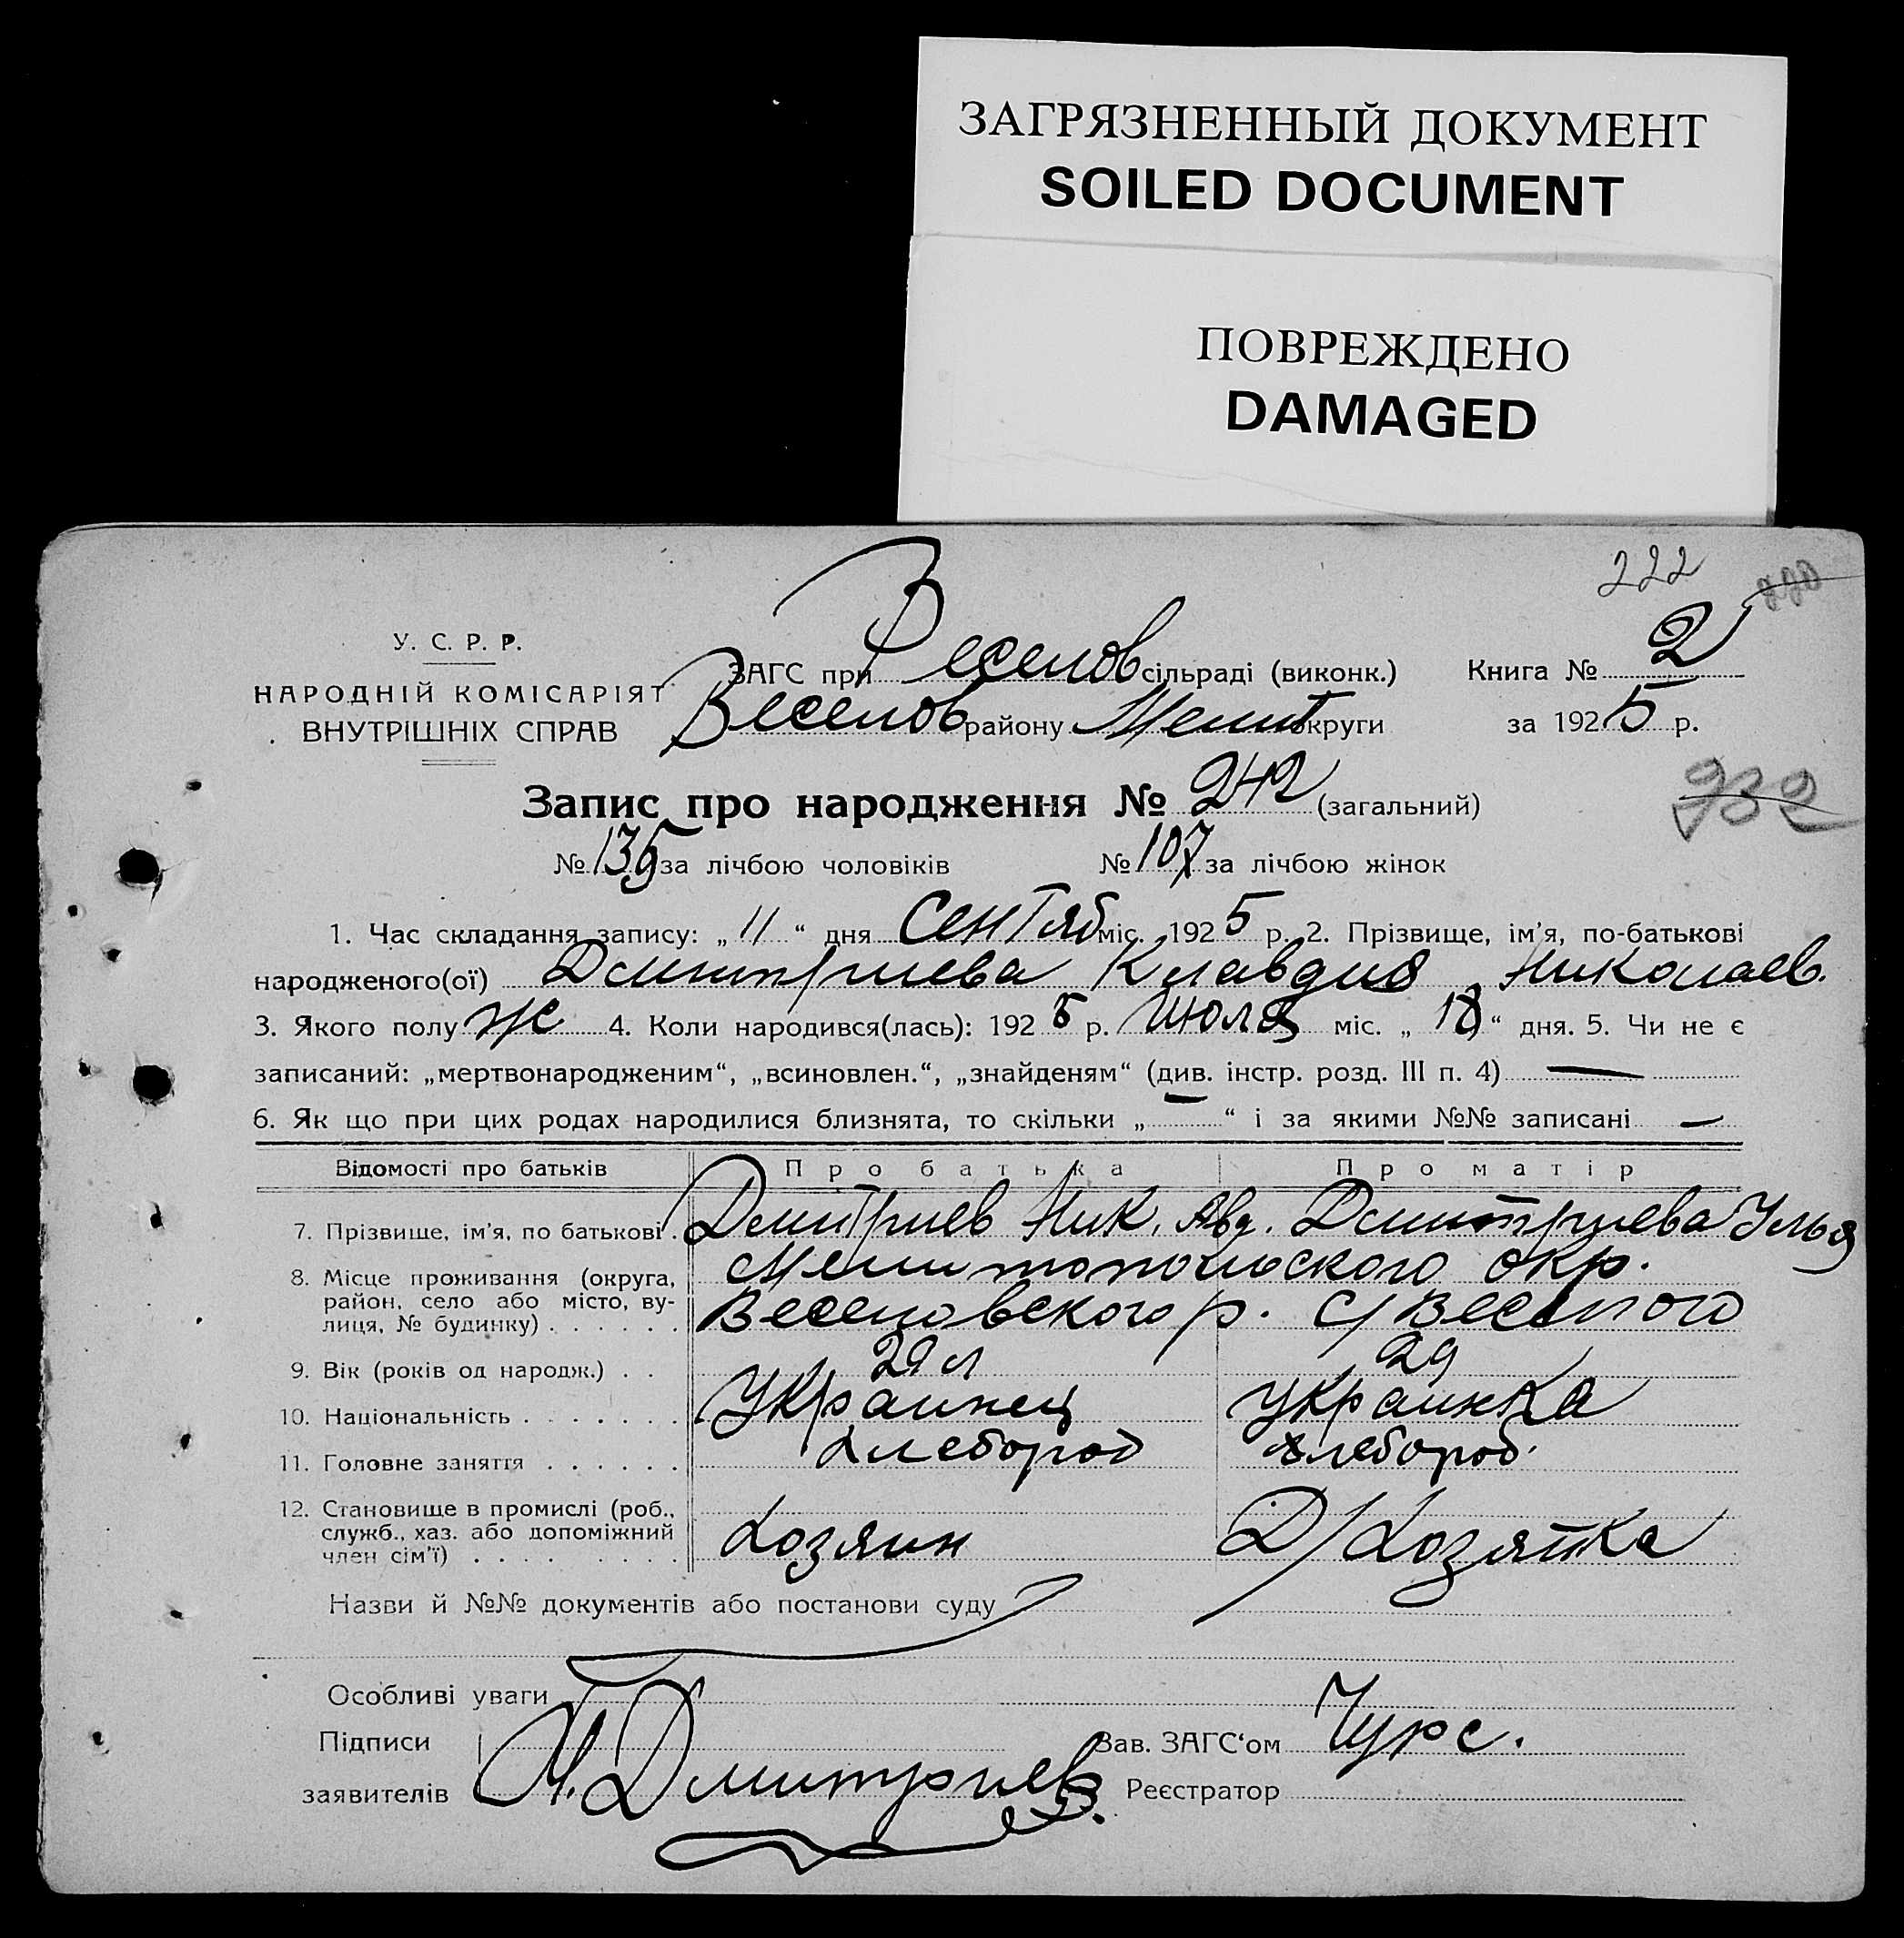 ЗАГРЯЗНЕННЫЙ ДОКУМЕНТ
SOILED DOCUMENT
ПОВРЕЖДЕНО
DAMAGED
222
220
У. С. Р. Р.
НАРОДНІЙ КОМІСАРІЯТ
ВНУТРІШНІХ СПРАВ
ЗАГС при Веселов сільраді (виконк.) Книга № 2
Веселов району Мелит округи за 1925 р.
Запис про народження № 242 (загальний)
932
№ 135 за лічбою чоловіків № 107 за лічбою жінок
1. Час складання запису: „ 11 “ дня Сентяб міс. 1925 р. 2. Прізвище, ім’я, по-батькові
народженого(ої) Дмитриева Клавдия Николаев.
3. Якого полу ж 4. Коли народився(лась): 1925 р. Июля міс. „ 18 “ дня. 5. Чи не є
записаний: „мертвонародженим“, „всиновлен.“, „знайденям“ (див. інстр. розд. III п. 4) —
6. Як що при цих родах народилися близнята, то скільки „ — “ і за якими №№ записані —
Відомості про батьків Про батька Про матір
7. Прізвище, ім’я, по батькові . Дмитриев Ник. Авд. Дмитриева Улья
8. Місце проживання (округа, район, село або місто, вулиця, № будинку) . . . . . . Мелитопольского окр.
Веселовского р. с/Веселого
9. Вік (років од народж.) . . 29 л 29
10. Національність . . . . . . . Украинец Украинка
11. Головне заняття . . . . . . Хлебороб хлебороб.
12. Становище в промислі (роб., служб., хаз. або допоміжний член сім’ї) . . . . . . . . Хозяин Д/Хозяйка
Назви й №№ документів або постанови суду
Особливі уваги
Підписи Зав. ЗАГС‘ом Чурс.
заявителів Н. Дмитриев. Реєстратор